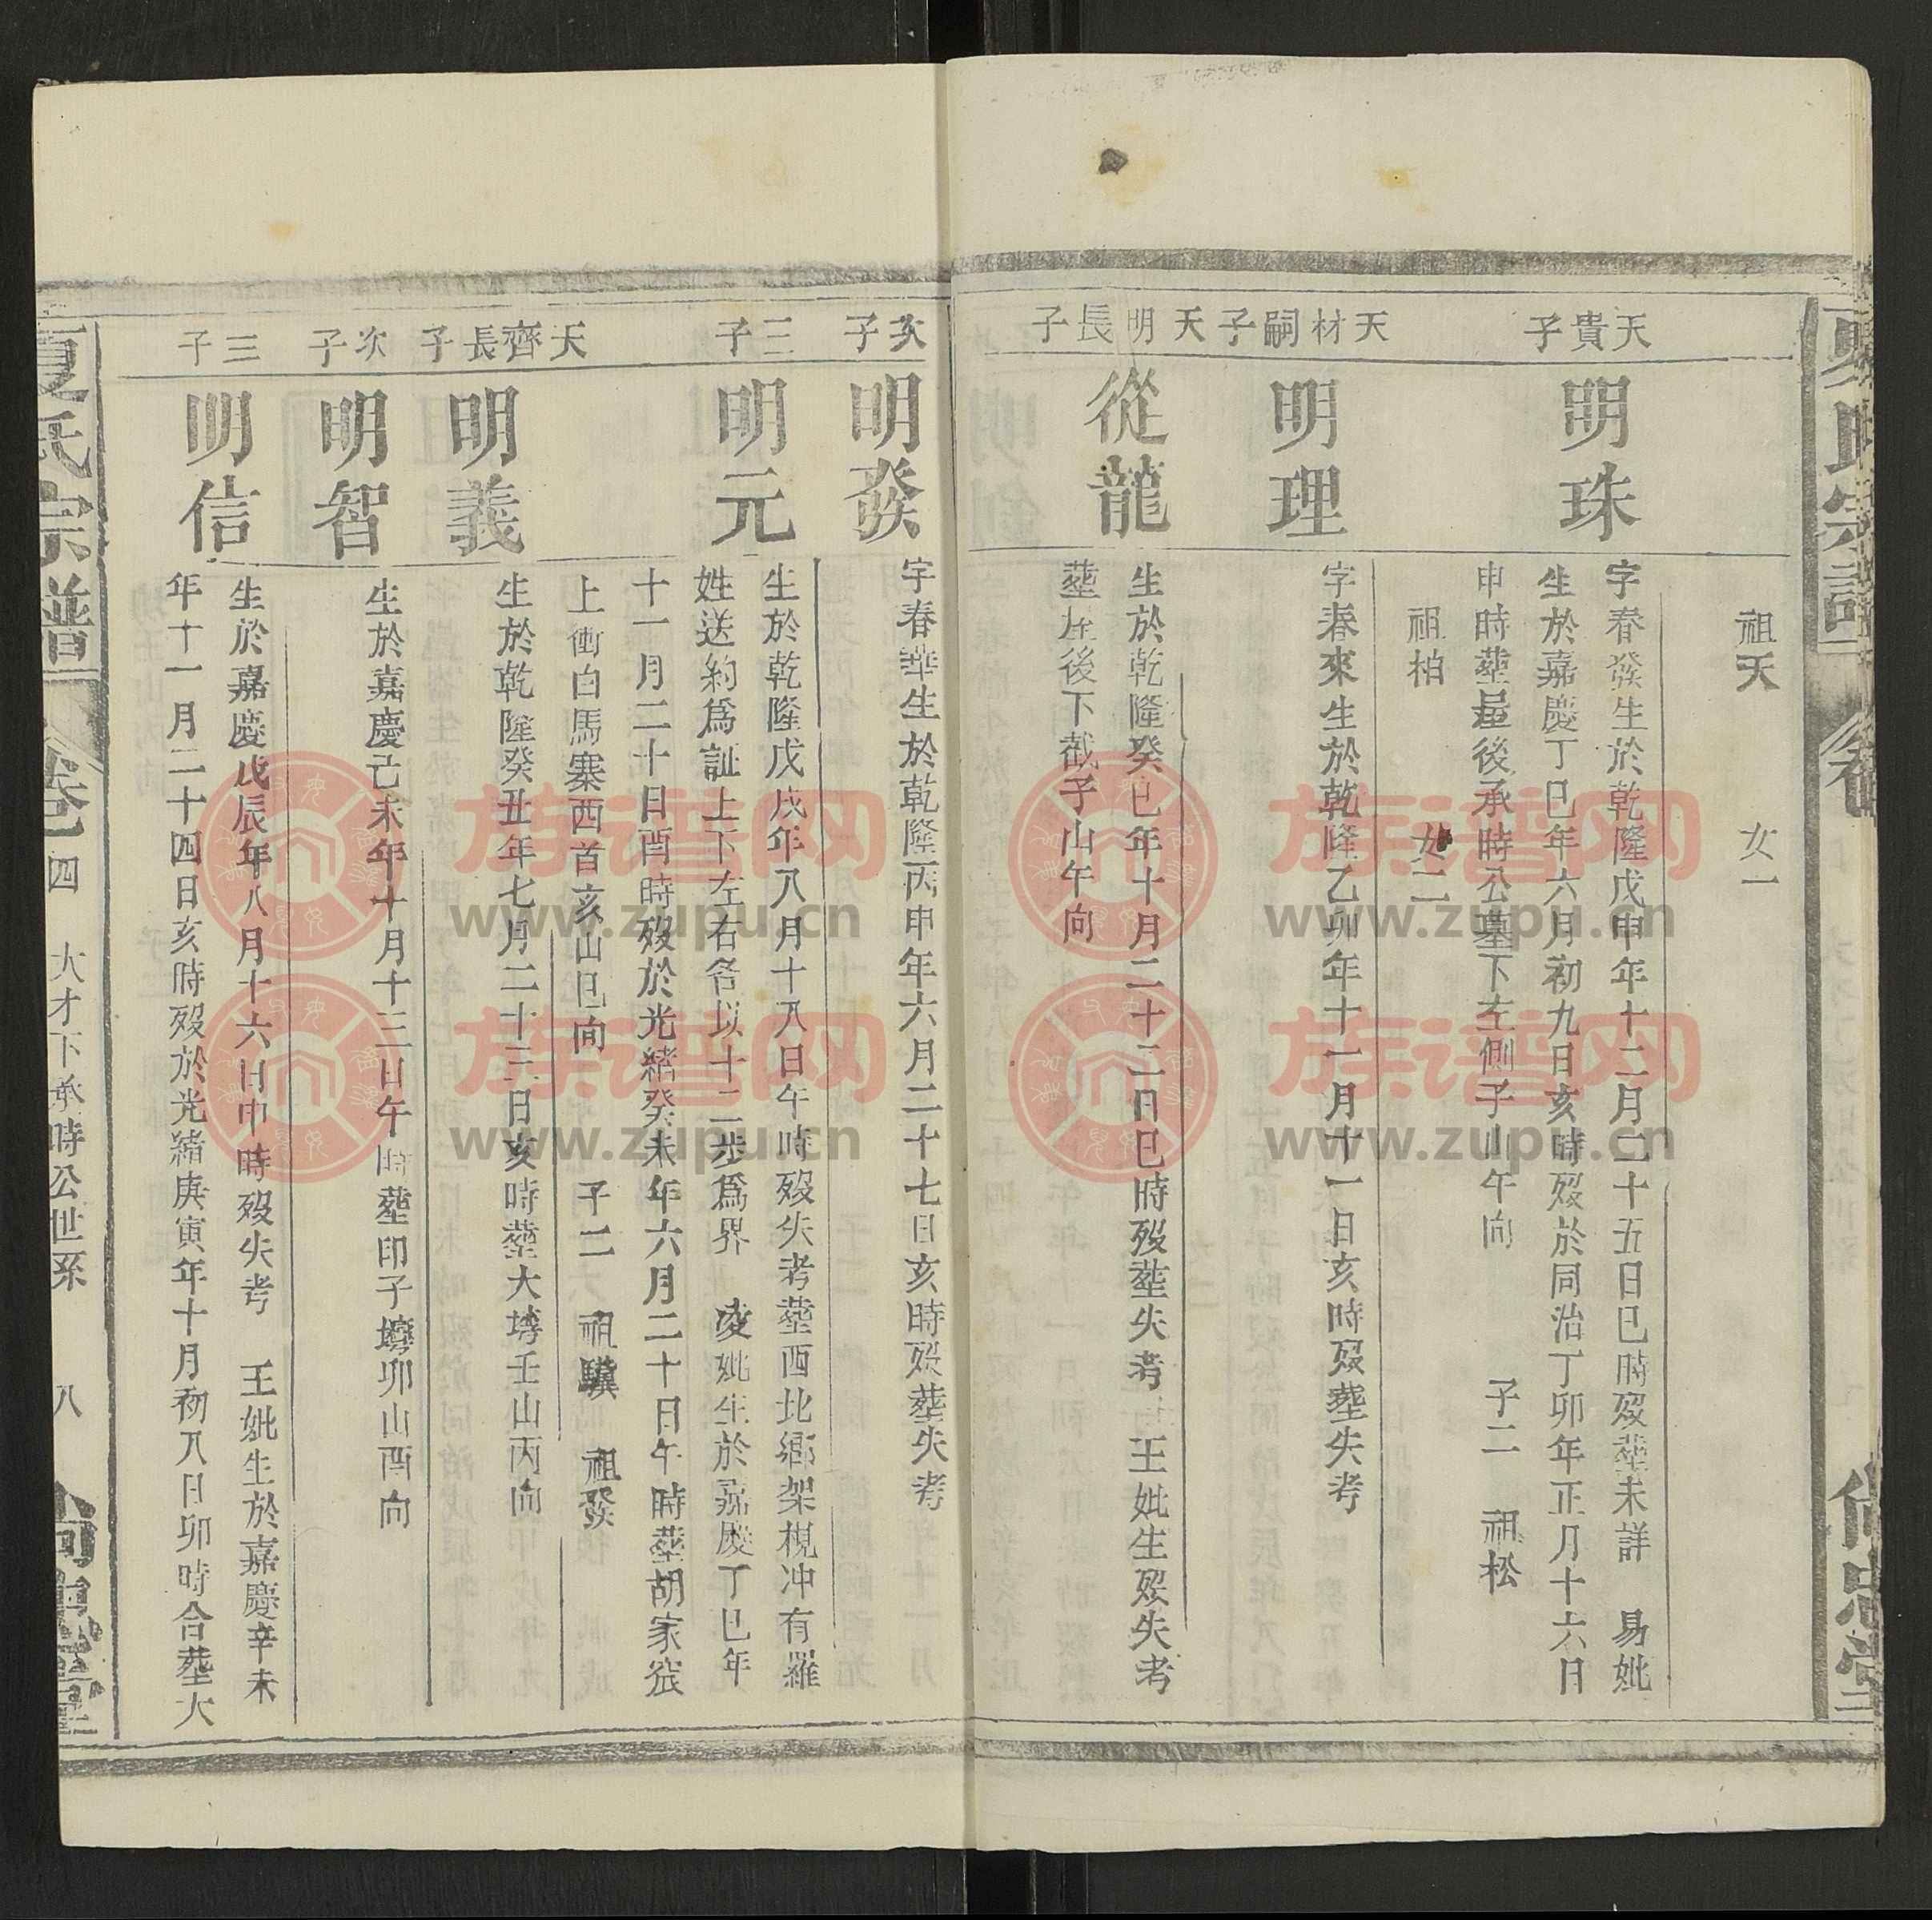 祖天 女一
天貴子
明珠
字春發生於乾隆戊申年十二月二十五日巳時歿葬未詳 易妣
生於嘉慶丁巳年六月初九日亥時歿於同治丁卯年正月十六日
申時葬屋後承時公墓下左側子山午向 子二 祖松
祖柏 女二
天材嗣子
明理
字春來生於乾隆乙卯年十一月十一日亥時歿葬失考
天明長子
從龍
生於乾隆癸巳年十月二十二日巳時歿葬失考 王妣生歿失考
葬屋後下截子山午向
次子
明發
字春華生於乾隆丙申年六月二十七日亥時歿葬失考
三子
明元
生於乾隆戊戌年八月十八日午時歿失考葬西北鄉架梘冲有羅
姓送約爲証上下左右各以十二步爲界 凌妣生於嘉慶丁巳年
十一月二十日酉時歿於光緒癸未年六月二十日午時葬胡家
上衝白馬寨西首亥山巳向 子二 祖驥 祖發
天齊長子
明義
生於乾隆癸丑年七月二十三日亥時葬大塝壬山丙向
次子
明智
生於嘉慶己未年十月十三日午時葬印子塝卯山酉向
三子
明信
生於嘉慶戊辰年八月十六日申時歿失考 王妣生於嘉慶辛未
年十一月二十四日亥時歿於光緒庚寅年十月初八日卯時合葬大
夏氏宗譜 卷四 大才下承時公世系 八
族谱网
www.zupu.cn
族谱网
www.zupu.cn
族谱网
www.zupu.cn
族谱网
www.zupu.cn